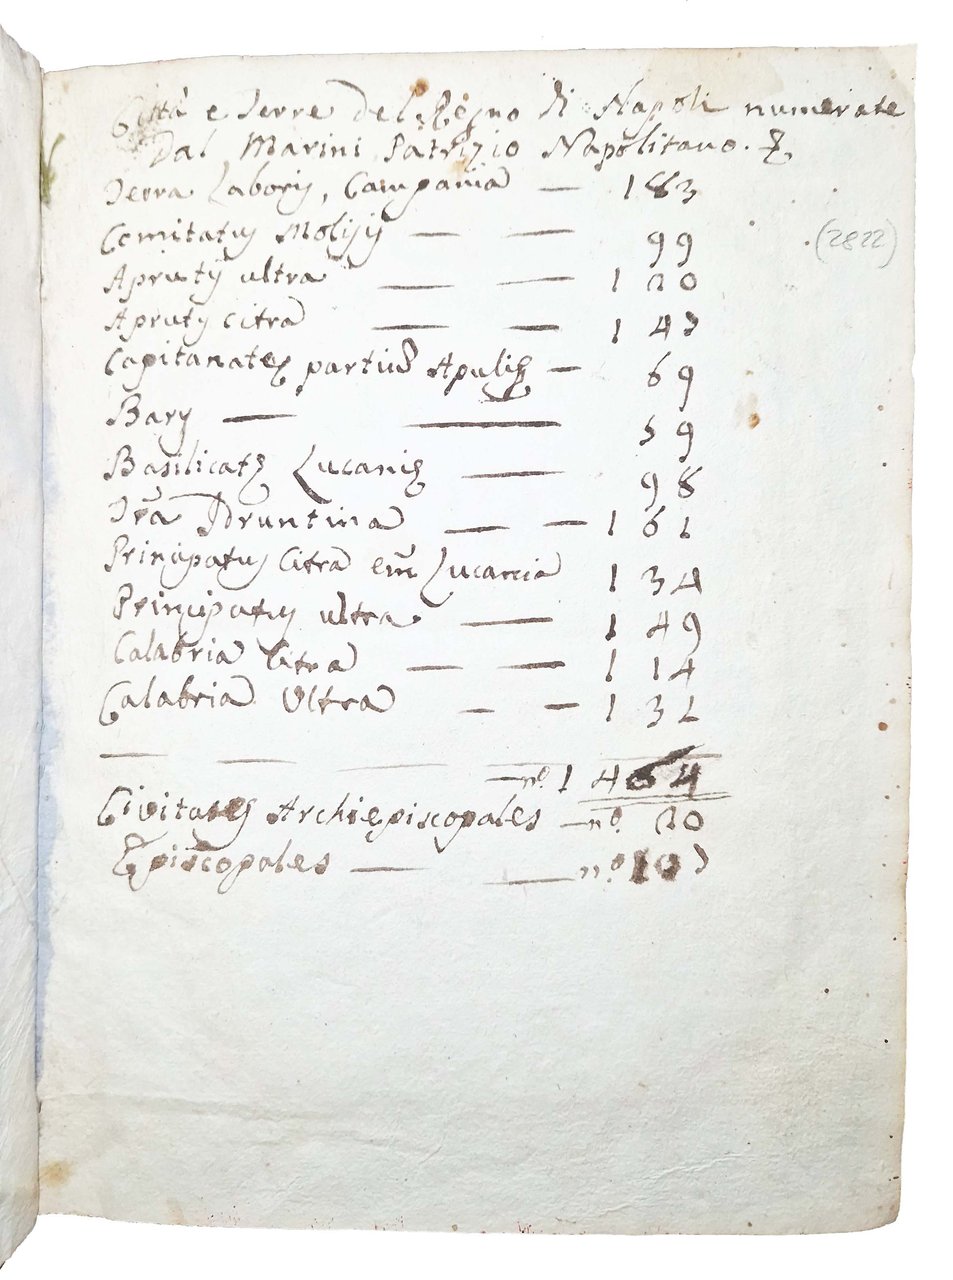 Città e Terre del Regno di Napoli numerate
Dal Marini Patrizio Napolitano.
Terra Laboris, Campania — 183
Comitatus Molisij — — 99
(2822)
Aprutij ultra — — 120
Aprutij citra — — 147
Capitanatę partiũ Apulię — 69
Barij — — 59
Basilicatę Lucanię — 98
Tr̃a Idruntina — — 161
Principatus Citra em̃ Lucania 134
Principatus ultra — 149
Calabria Citra — — 114
Calabria Ultra — — 131
— nº. 1464
Civitates Archiepiscopales — nº. 20
Episcopales — — nº 107